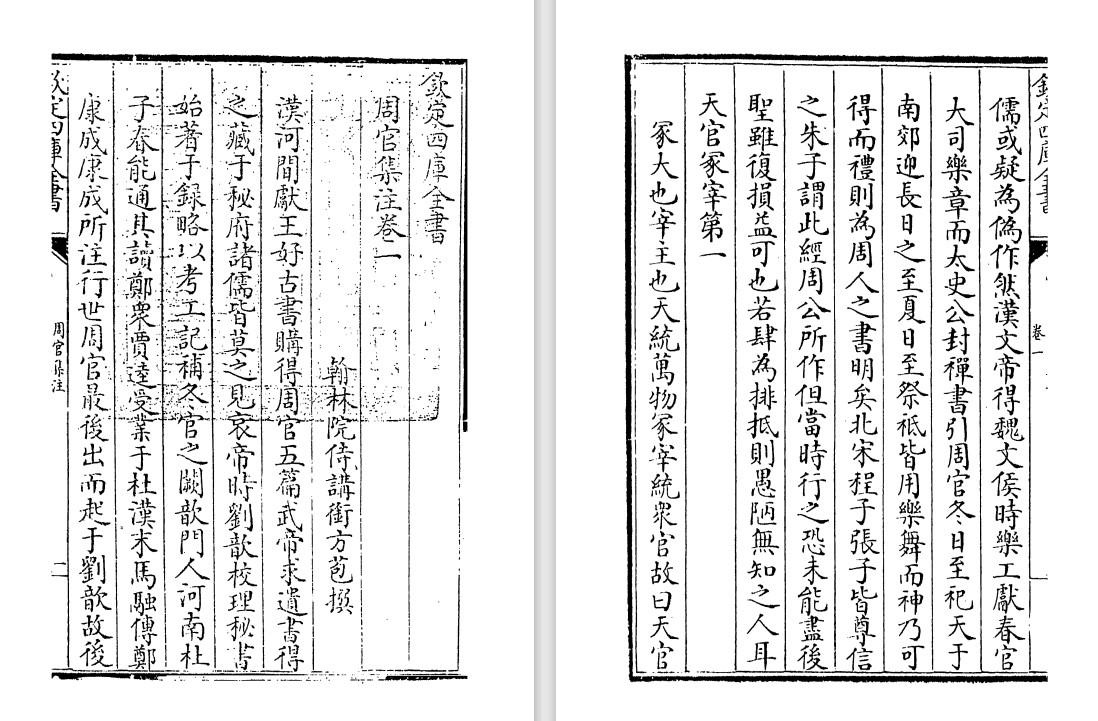 欽定四庫全書
周官集注卷一
翰林院侍講銜方苞撰
漢河間獻王好古書購得周官五篇武帝求遺書得
之藏于秘府諸儒皆莫之見哀帝時劉歆校理秘書
始著于録略以考工記補冬官之闕歆門人河南杜
子春能通其讀鄭衆賈逵受業于杜漢末馬融傳鄭
康成康成所注行世周官最後出而起于劉歆故後
欽定四庫全書
周官集注
欽定四庫全書
卷一
儒或疑為偽作然漢文帝得魏文侯時樂工獻春官
大司樂章而太史公封禪書引周官冬日至祀天于
南郊迎長日之至夏日至祭祗皆用樂舞而神乃可
得而禮則為周人之書明矣北宋程子張子皆尊信
之朱子謂此經周公所作但當時行之恐未能盡後
聖雖復損益可也若肆為排抵則愚陋無知之人耳
天官冢宰第一
冢大也宰主也天統萬物冢宰統衆官故曰天官